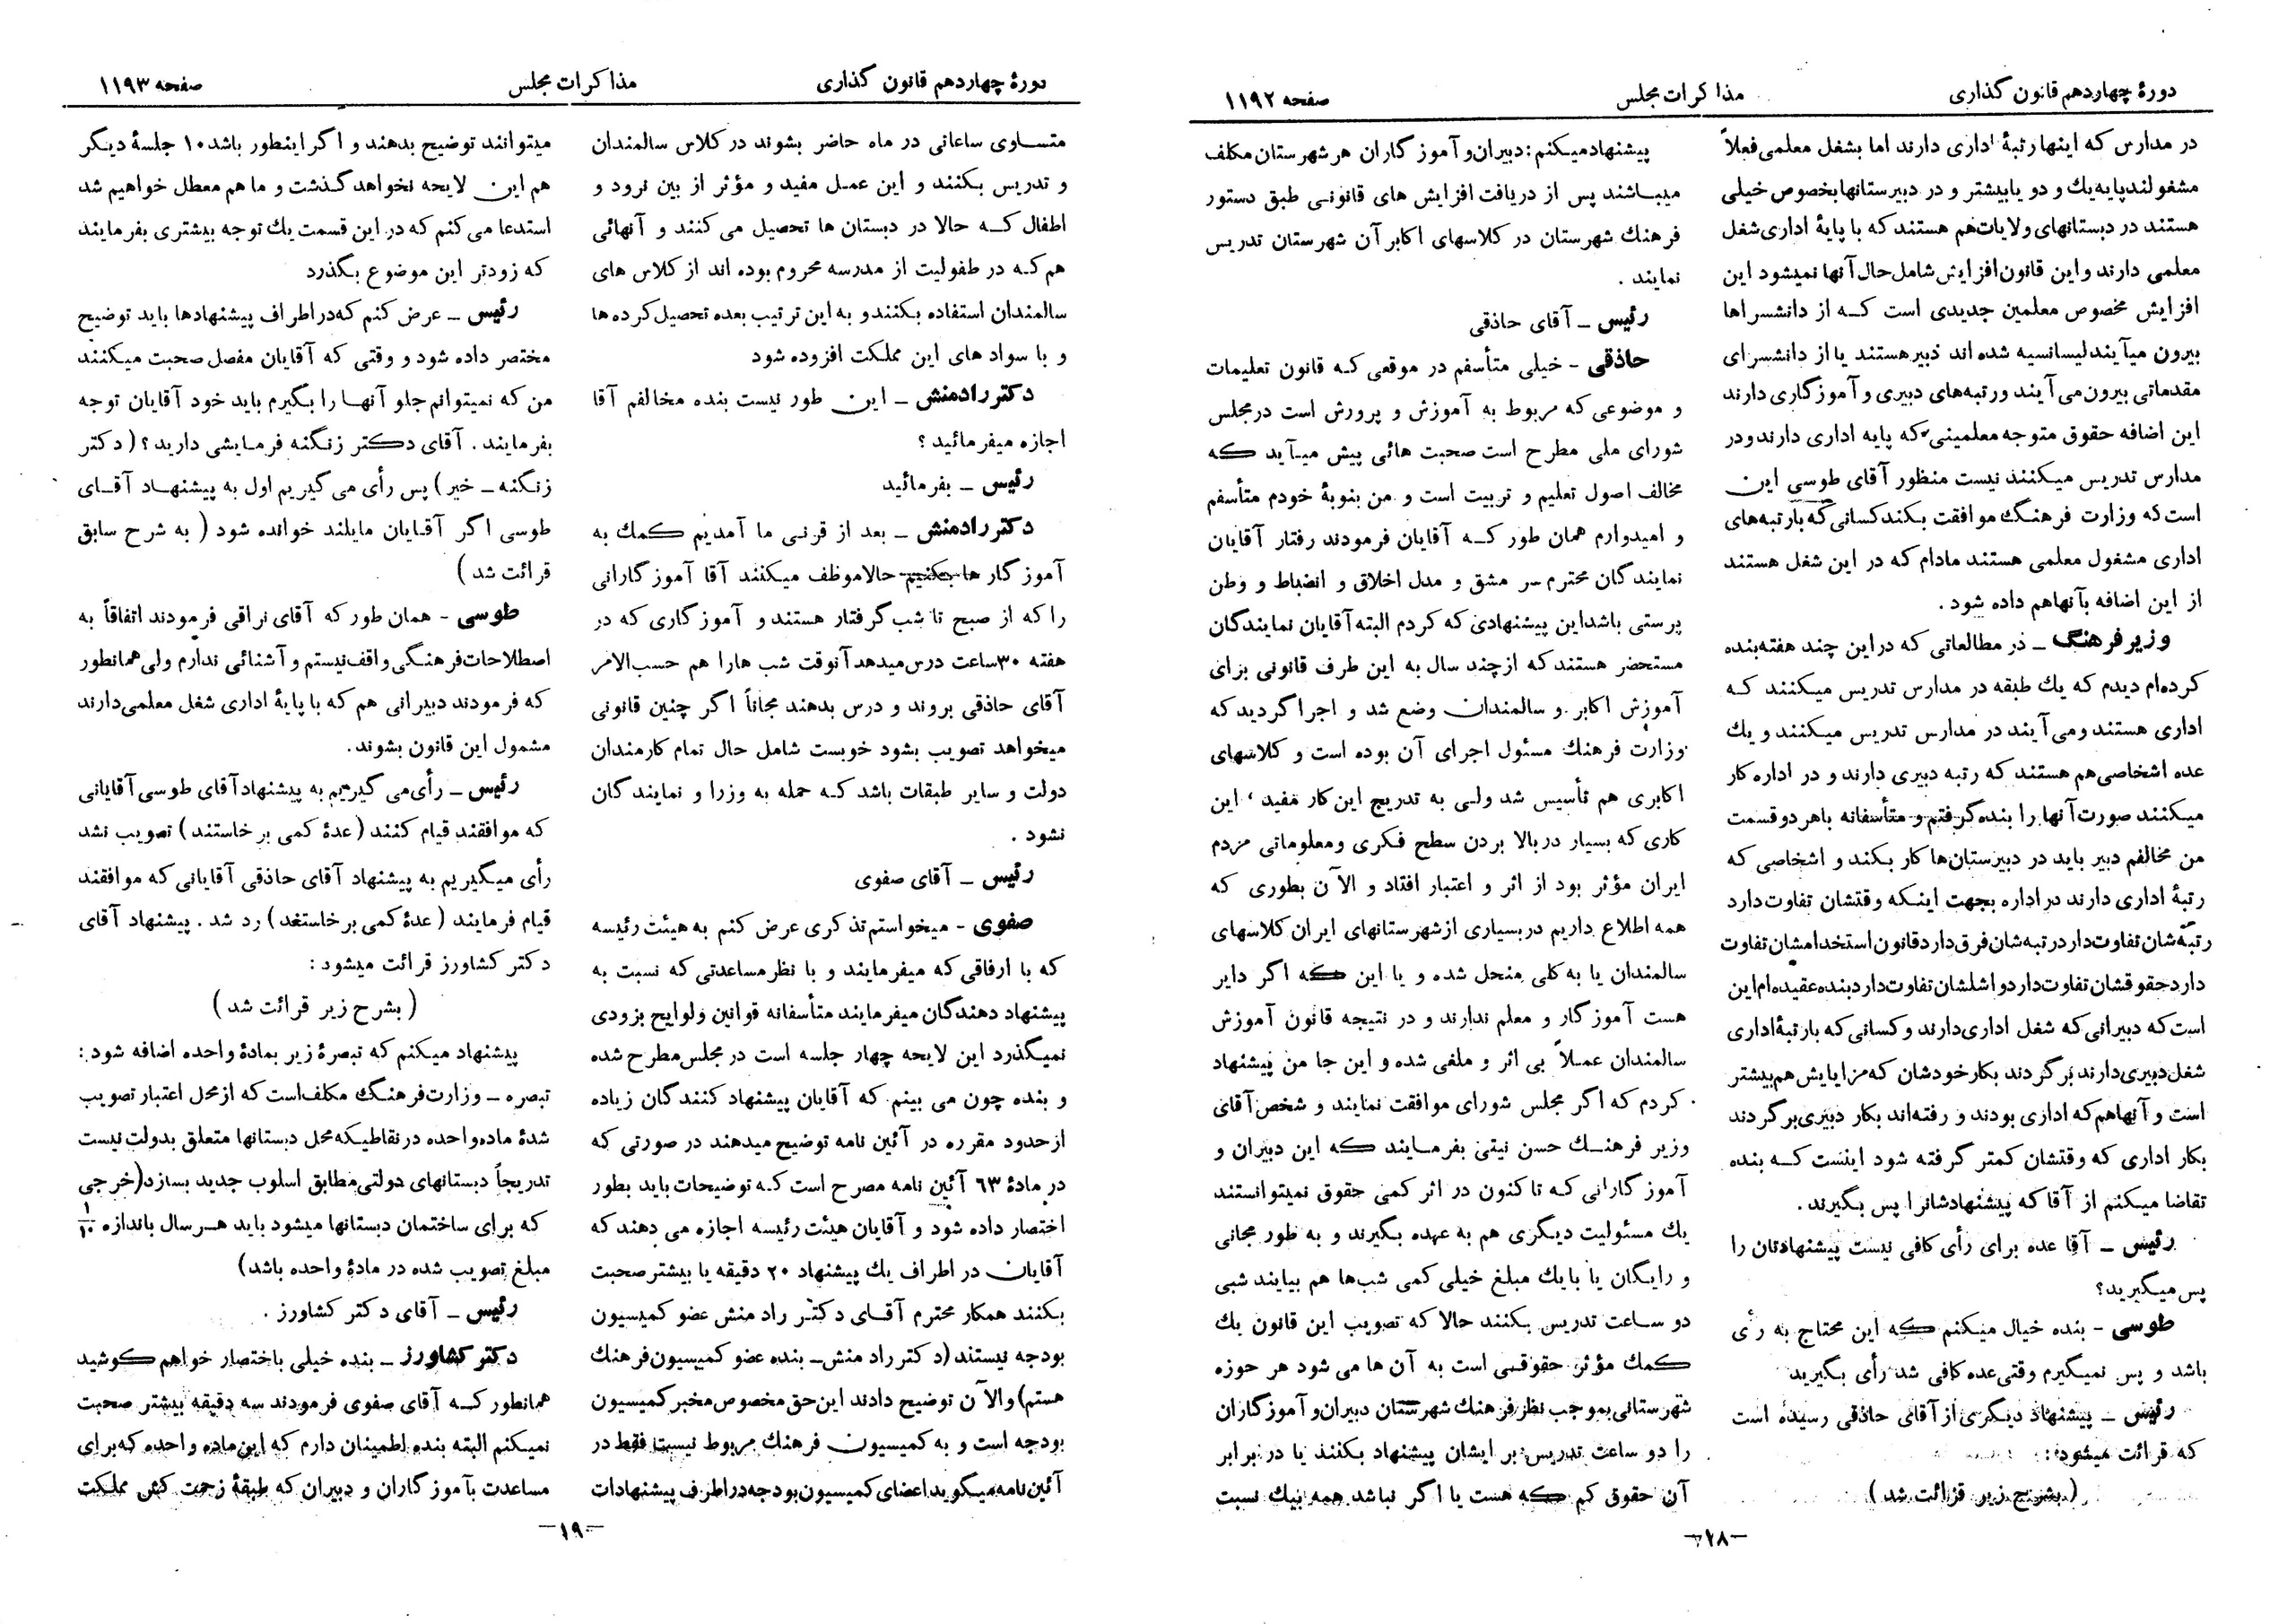 دورهٔ چهاردهم قانون گذاری
مذاکرات مجلس
صفحه ۱۱۹۲
در مدارس که اینها رتبهٔ اداری دارند اما بشغل معلمی فعلاً
مشغولند پایه یك و دو یا بیشتر و در دبیرستانها بخصوص خیلی
هستند در دبستانهای ولایات هم هستند که با پایهٔ اداری شغل
معلمی دارند و این قانون افزایش شامل حال آنها نمیشود این
افزایش مخصوص معلمین جدیدی است که از دانشسراها
بیرون میآیند لیسانسیه شده اند دبیر هستند یا از دانشسرای
مقدماتی بیرون می آیند و رتبه های دبیری و آموزگاری دارند
این اضافه حقوق متوجه معلمینی که پایه اداری دارند و در
مدارس تدریس میکنند نیست منظور آقای طوسی این
است که وزارت فرهنگ موافقت بکند کسانی که بارتبه های
اداری مشغول معلمی هستند مادام که در این شغل هستند
از این اضافه بآنها هم داده شود .
وزیر فرهنگ ـ در مطالعاتی که در این چند هفته بنده
کرده ام دیدم که یك طبقه در مدارس تدریس میکنند که
اداری هستند و می آیند در مدارس تدریس میکنند و یك
عده اشخاصی هم هستند که رتبه دبیری دارند و در اداره کار
میکنند صورت آنها را بنده گرفتم و متأسفانه باهر دو قسمت
من مخالفم دبیر باید در دبیرستان ها کار بکند و اشخاصی که
رتبهٔ اداری دارند در اداره بجهت اینکه وقتشان تفاوت دارد
رتبه شان تفاوت دارد رتبه شان فرق دارد قانون استخدامشان تفاوت
دارد حقوقشان تفاوت دارد و اشلشان تفاوت دارد بنده عقیده ام این
است که دبیرانی که شغل اداری دارند و کسانی که بارتبهٔ اداری
شغل دبیری دارند برگردند بکار خودشان که مزایایش هم بیشتر
است و آنها هم که اداری بودند و رفته اند بکار دبیری برگردند
بکار اداری که وقتشان کمتر گرفته شود اینست که بنده
تقاضا میکنم از آقا که پیشنهادشانرا پس بگیرند .
رئیس ـ آقا عده برای رأی کافی نیست پیشنهادتان را
پس میگیرید؟
طوسی - بنده خیال میکنم که این محتاج به رأی
باشد و پس نمیگیرم وقتی عده کافی شد رأی بگیرید
رئیس ـ پیشنهاد دیگری از آقای حاذقی رسیده است
که قرائت میشود :
( بشرح زیر قرائت شد )
پیشنهاد میکنم : دبیران و آموزگاران هر شهرستان مکلف
میباشند پس از دریافت افزایش های قانونی طبق دستور
فرهنك شهرستان در کلاسهای اکابر آن شهرستان تدریس
نمایند .
رئیس ـ آقای حاذقی
حاذقی - خیلی متأسفم در موقعی که قانون تعلیمات
و موضوعی که مربوط به آموزش و پرورش است در مجلس
شورای ملی مطرح است صحبت هائی پیش میآید که
مخالف اصول تعلیم و تربیت است و من بنوبهٔ خودم متأسفم
و امیدوارم همان طور که آقایان فرمودند رفتار آقایان
نمایندگان محترم سر مشق و مدل اخلاق و انضباط و وطن
پرستی باشد این پیشنهادی که کردم البته آقایان نمایندگان
مستحضر هستند که از چند سال به این طرف قانونی برای
آموزش اکابر و سالمندان وضع شد و اجرا گردید که
وزارت فرهنك مسئول اجرای آن بوده است و کلاسهای
اکابری هم تأسیس شد ولی به تدریج این کار مفید ، این
کاری که بسیار در بالا بردن سطح فکری و معلوماتی مردم
ایران مؤثر بود از اثر و اعتبار افتاد و الآن بطوری که
همه اطلاع داریم در بسیاری از شهرستانهای ایران کلاسهای
سالمندان یا به کلی منحل شده و یا این که اگر دایر
هست آموزگار و معلم ندارند و در نتیجه قانون آموزش
سالمندان عملاً بی اثر و ملغی شده و این جا من پیشنهاد
کردم که اگر مجلس شورای موافقت نمایند و شخص آقای
وزیر فرهنك حسن نیتی بفرمایند که این دبیران و
آموزگارانی که تا کنون در اثر کمی حقوق نمیتوانستند
یك مسئولیت دیگری هم به عهده بگیرند و به طور مجانی
و رایگان یا با یك مبلغ خیلی کمی شب ها هم بیایند شبی
دو ساعت تدریس بکنند حالا که تصویب این قانون یك
کمك مؤثر حقوقی است به آن ها می شود هر حوزه
شهرستانی بموجب نظر فرهنك شهرستان دبیران و آموزگاران
را دو ساعت تدریس بر ایشان پیشنهاد بکنند یا در برابر
آن حقوق کم که هست یا اگر نباشد همه بیك نسبت
ـ ۱۸ ـ
دورهٔ چهاردهم قانون گذاری
مذاکرات مجلس
صفحه ۱۱۹۳
متساوی ساعاتی در ماه حاضر بشوند در کلاس سالمندان
و تدریس بکنند و این عمل مفید و مؤثر از بین نرود و
اطفال که حالا در دبستان ها تحصیل می کنند و آنهائی
هم که در طفولیت از مدرسه محروم بوده اند از کلاس های
سالمندان استفاده بکنند و به این ترتیب بعده تحصیل کرده ها
و با سواد های این مملکت افزوده شود
دکتر رادمنش ـ این طور نیست بنده مخالفم آقا
اجازه میفرمائید ؟
رئیس ـ بفرمائید
دکتر رادمنش ـ بعد از قرنی ما آمدیم کمك به
آموزگار ها بکنیم حالا موظف میکنند آقا آموزگارانی
را که از صبح تا شب گرفتار هستند و آموزگاری که در
هفته ۳۰ ساعت درس میدهد آنوقت شب هارا هم حسب الامر
آقای حاذقی بروند و درس بدهند مجاناً اگر چنین قانونی
میخواهد تصویب بشود خوبست شامل حال تمام کارمندان
دولت و سایر طبقات باشد که حمله به وزرا و نمایندگان
نشود .
رئیس ـ آقای صفوی
صفوی - میخواستم تذکری عرض کنم به هیئت رئیسه
که با ارفاقی که میفرمایند و با نظر مساعدتی که نسبت به
پیشنهاد دهندگان میفرمایند متأسفانه قوانین و لوایح بزودی
نمیگذرد این لایحه چهار جلسه است در مجلس مطرح شده
و بنده چون می بینم که آقایان پیشنهاد کنندگان زیاده
از حدود مقرره در آئین نامه توضیح میدهند در صورتی که
در مادهٔ ۶۳ آئین نامه مصرح است که توضیحات باید بطور
اختصار داده شود و آقایان هیئت رئیسه اجازه می دهند که
آقایان در اطراف یك پیشنهاد ۲۰ دقیقه یا بیشتر صحبت
بکنند همکار محترم آقای دکتر رادمنش عضو کمیسیون
بودجه نیستند (دکتر رادمنش ـ بنده عضو کمیسیون فرهنك
هستم) والآن توضیح دادند این حق مخصوص مخبر کمیسیون
بودجه است و به کمیسیون فرهنك مربوط نیست فقط در
آئین نامه میگوید اعضای کمیسیون بودجه در اطراف پیشنهادات
میتوانند توضیح بدهند و اگر اینطور باشد ۱۰ جلسهٔ دیگر
هم این لایحه نخواهد گذشت و ما هم معطل خواهیم شد
استدعا می کنم که در این قسمت یك توجه بیشتری بفرمایند
که زودتر این موضوع بگذرد
رئیس ـ عرض کنم که در اطراف پیشنهادها باید توضیح
مختصر داده شود و وقتی که آقایان مفصل صحبت میکنند
من که نمیتوانم جلو آنها را بگیرم باید خود آقایان توجه
بفرمایند . آقای دکتر زنگنه فرمایشی دارید ؟ ( دکتر
زنگنه ـ خیر ) پس رأی می گیریم اول به پیشنهاد آقای
طوسی اگر آقایان مایلند خوانده شود ( به شرح سابق
قرائت شد )
طوسی - همان طور که آقای نراقی فرمودند اتفاقاً به
اصطلاحات فرهنگی واقف نیستم و آشنائی ندارم ولی همانطور
که فرمودند دبیرانی هم که با پایهٔ اداری شغل معلمی دارند
مشمول این قانون بشوند.
رئیس ـ رأی می گیریم به پیشنهاد آقای طوسی آقایانی
که موافقند قیام کنند ( عدهٔ کمی بر خاستند ) تصویب نشد
رأی میگیریم به پیشنهاد آقای حاذقی آقایانی که موافقند
قیام فرمایند ( عدهٔ کمی بر خاستند ) رد شد . پیشنهاد آقای
دکتر کشاورز قرائت میشود :
( بشرح زیر قرائت شد )
پیشنهاد میکنم که تبصرهٔ زیر بمادهٔ واحده اضافه شود :
تبصره ـ وزارت فرهنگ مکلف است که از محل اعتبار تصویب
شدهٔ ماده واحده در نقاطیکه محل دبستانها متعلق بدولت نیست
تدریجاً دبستانهای دولتی مطابق اسلوب جدید بسازد (خرجی
که برای ساختمان دبستانها میشود باید هر سال باندازه ۱/۱۰
مبلغ تصویب شده در مادهٔ واحده باشد)
رئیس ـ آقای دکتر کشاورز .
دکتر کشاورز ـ بنده خیلی باختصار خواهم کوشید
همانطور که آقای صفوی فرمودند سه دقیقه بیشتر صحبت
نمیکنم البته بنده اطمینان دارم که این ماده واحده که برای
مساعدت بآموزگاران و دبیران که طبقهٔ زحمت کش مملکت
ـ ۱۹ ـ